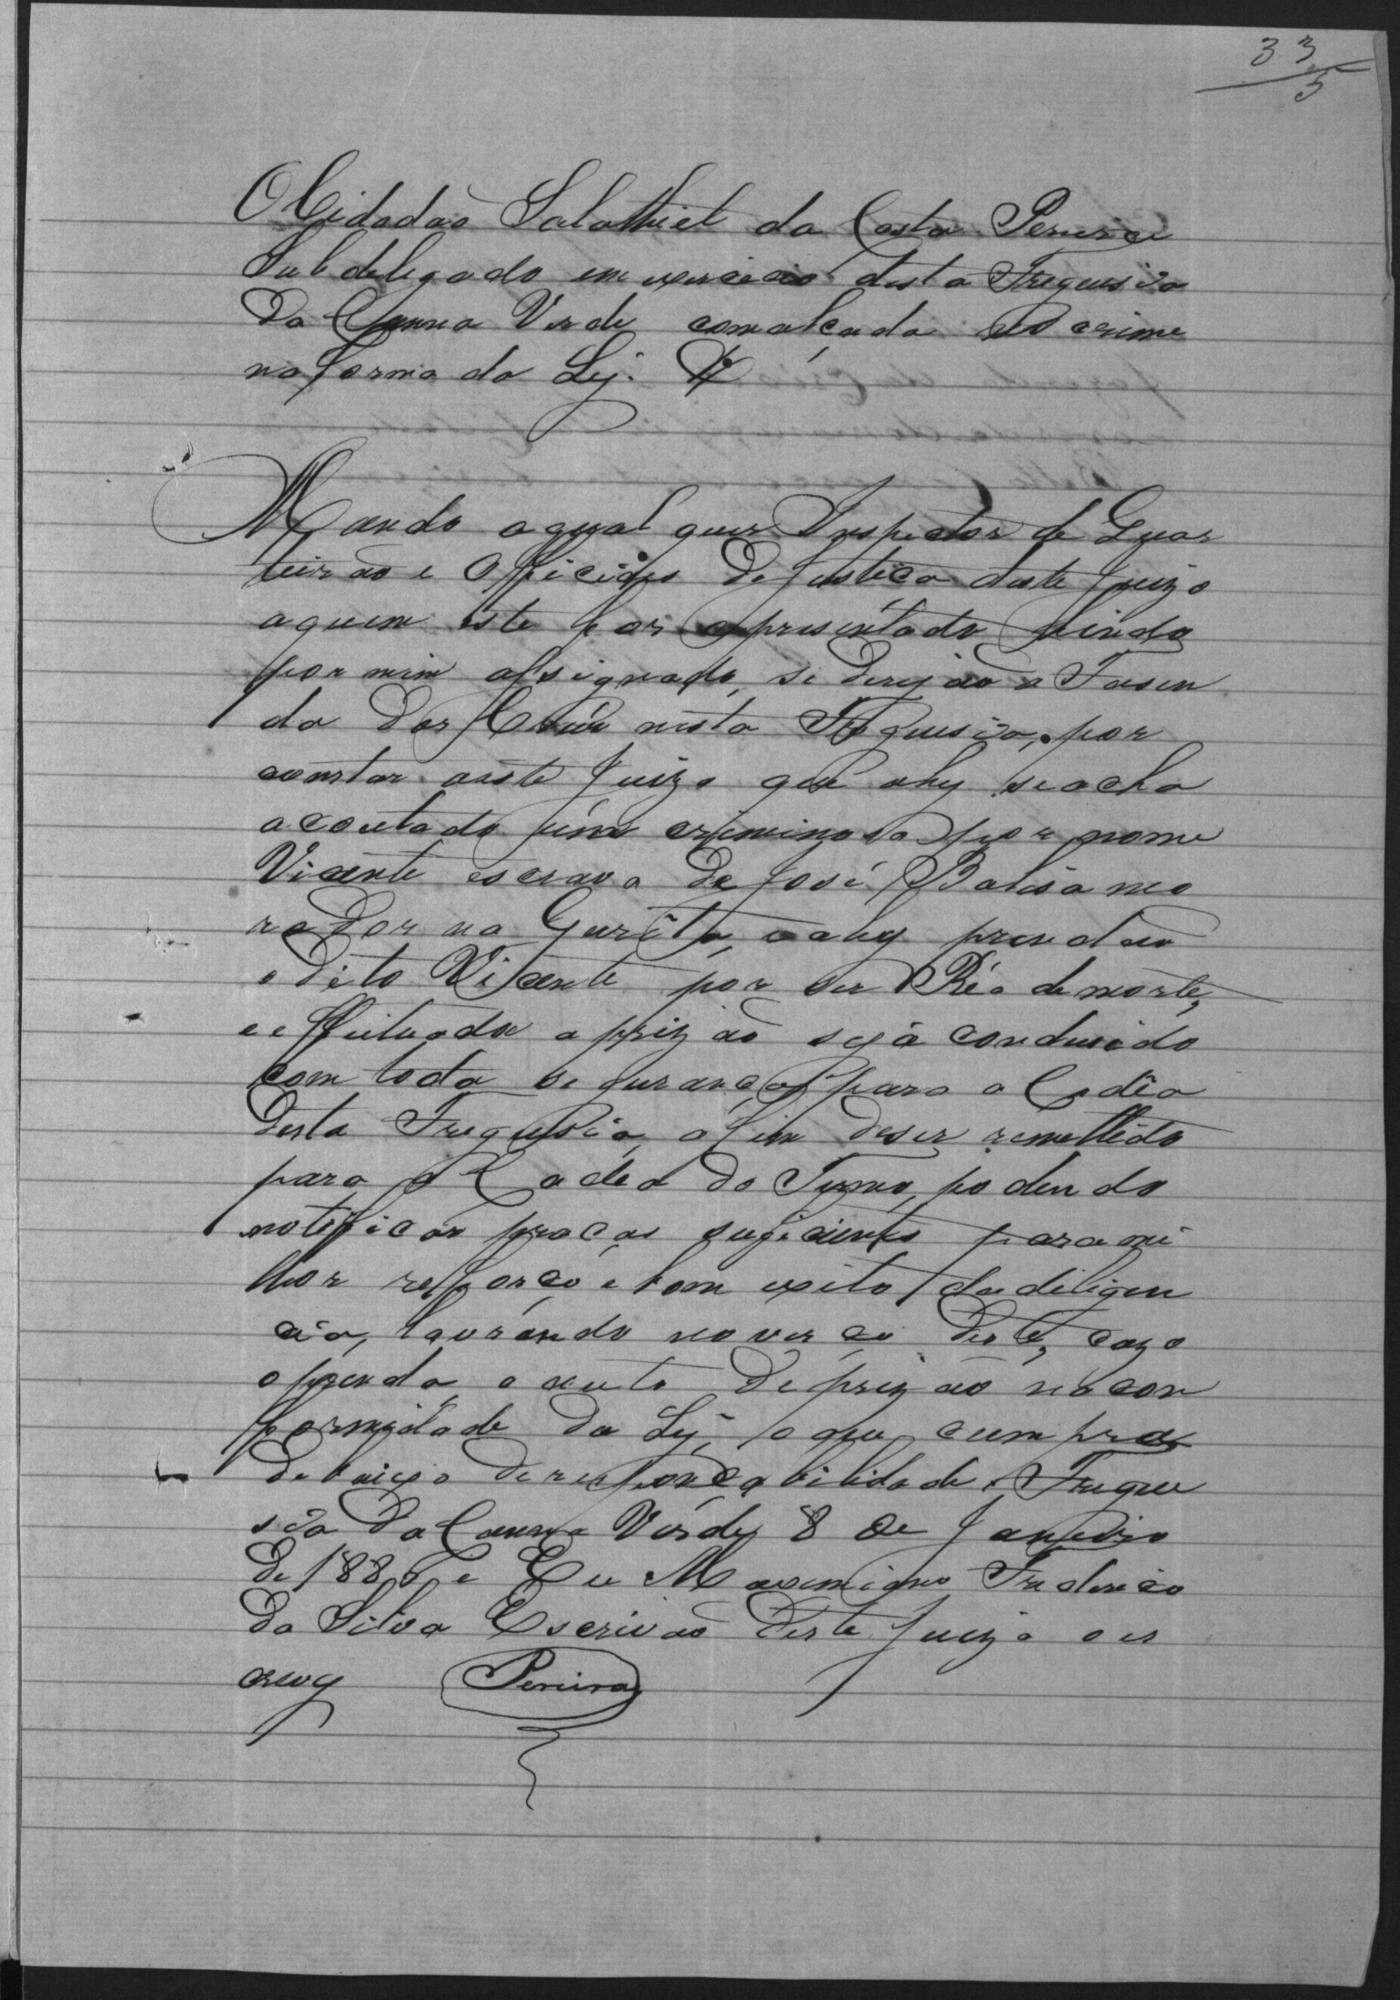 33
5
O Cidadão Salathiel da Costa Pereira
Subdelegado em exercicio desta Freguesia
da Canna Verde com alcada no crime
na forma da Ley. &
Mando a qual quer Inspector de Quar
teirão e Officiães de Justiça deste Juizo
a quem este for apresentado hindo
por mim assignado, se dirijão a Fasen
da dos nesta Freguesia, por
constar neste Juizo que ahy se acha
acoutado úm criminoso por nome
Vicente escravo de José Balisa mo
rador na Gurita, e ahy prendão
o dito Vicente por ser Réo de morte,
e effeituada a prizão seja condusido
com toda segurança para a Cadêa
desta Freguesia, afim de ser remettido
para a Cadêa do Termo, podendo
notificar praças suficientes para mi
lhor reforço e bom exito da diligen
cia, lavrando no verço deste, cazo
o prenda, o auto de prizão na con
formidade da Ley, o que cumpra
debaixo de responçabilidade. Fregue
sia da Canna Verde 8 de Janeiro
de 1886 e Eu Maximiano Frederico
da Silva Escrivão deste Juizo o es
crevy Pereira